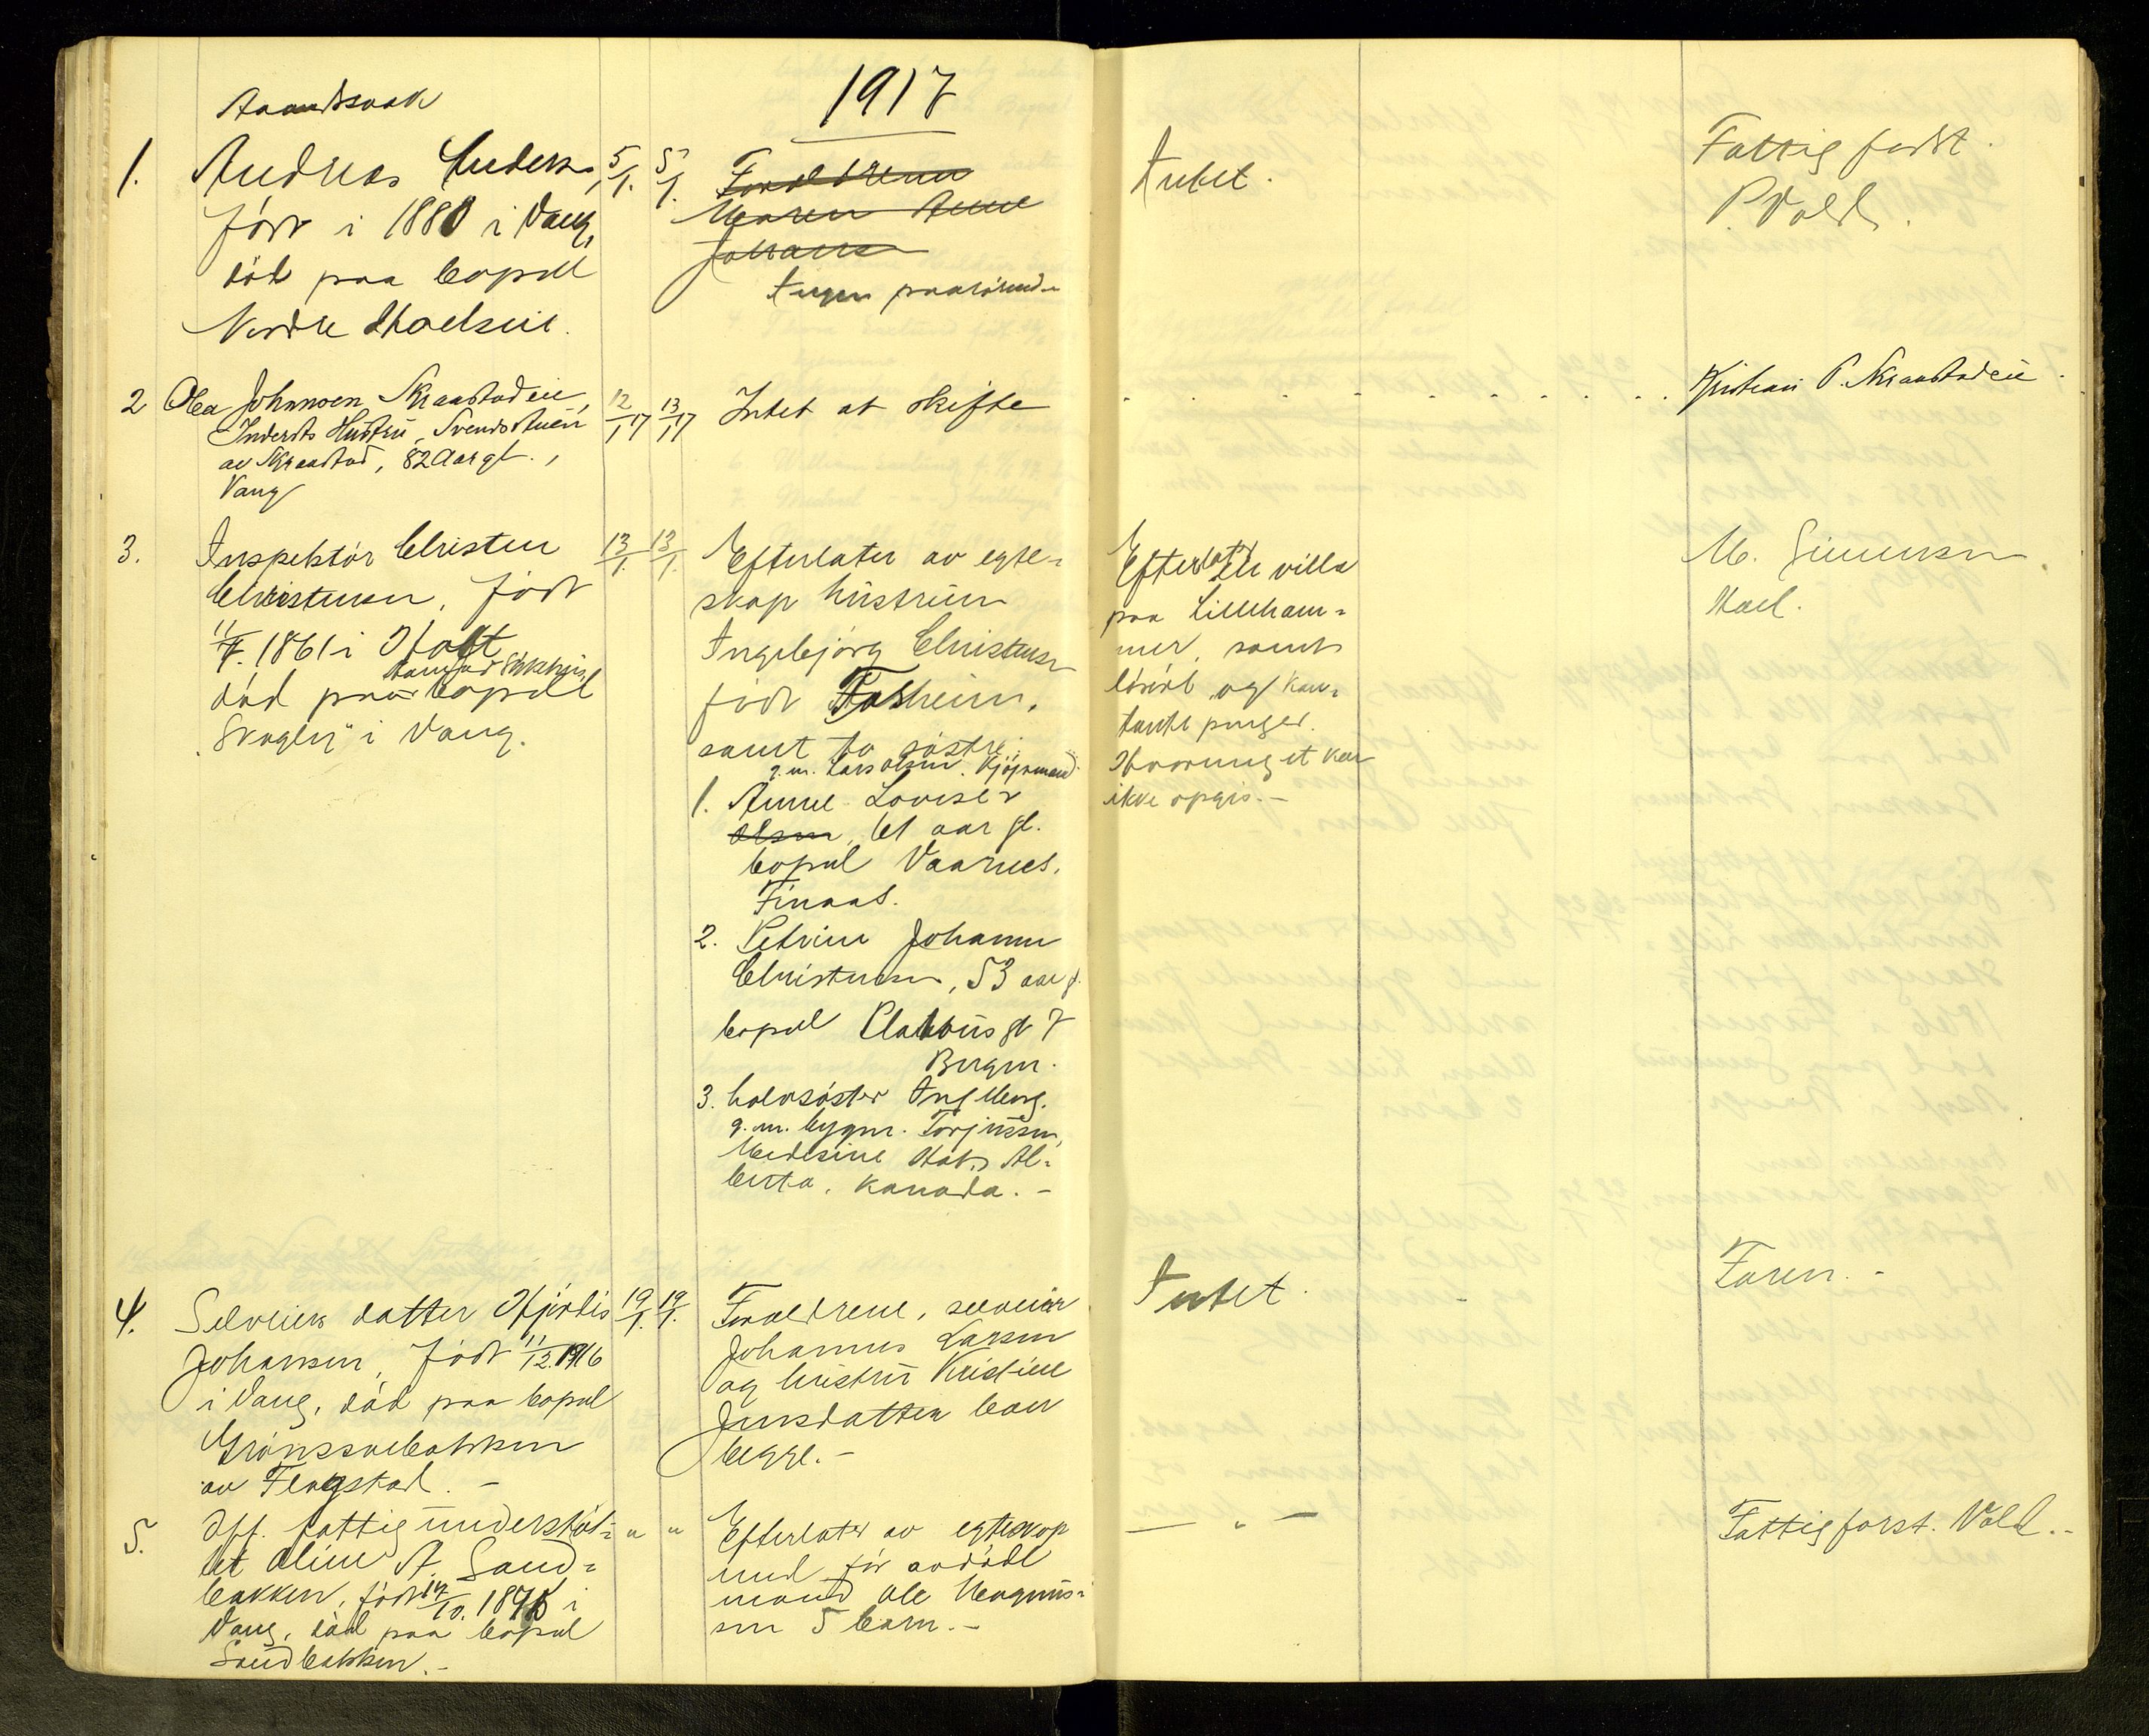 1917
Aandssvak
1. Andreas Anders, 5/1. 5/1.
født i 1880 i Vang,
død paa bopæl
Nordre Skaelseie.
Forældrene
Maren Anne
Johans
Ingen paarørende
Intet.
Fattigforst.
P. Vold.
2 Olea Johnnsen Skraastadeie, 12/1 17 13/1 17
Indersts Hustru, Svendstuen
av Skraastad, 82 Aar gl.,
Vang
Intet at skifte
Kristian P. Skraastadeie.
3. Inspektør Christen 13/1. 13/1.
Christensen, født
1861 i Holt
Hamar Sykehus,
død paa bopæl
"Skogly" i Vang.
Efterlater av egte-
skap hustruen
Ingebjørg Christensen
født Fosheim,
samt to søstre:
g.m. Lars Olsen. Kjøpmand
1. Anne Lovise
Olsen, 61 aar gl.
bopæl Vaarnes.
Finaas.
2. Petrine Johanne
Christensen, 53 aar g.
bopæl Claus gt 7
Bergen.
3. halvsøster Ing Marg.
g.m. bygm. Torjussen,
Medesine Hat, Al-
berta, Kanada. -
Efterlater villa
paa Lilleham-
mer, samt
løsøre og kon-
tante penger.
Hvor meget kan
ikke opgis. -
M. Simensen
Hael.
4. Selveiers datter Hjørdis 19/1. 19/1.
Johansen, født 11/12. 1916
i Vang, død paa bopæl
Grønsvebakken
av Flagstad. -
Forældrene, selveier
Johannes Larsen
og hustru Kristine
Jensdatter bær
begge. -
Intet.
Faren. -
5. Off. fattigunderstøt- " "
tet Oline A. Sand-
bakken, født 14/10. 187 i
Vang, død paa bopæl
Sandbakken. -
Efterlater av egteskap
med før avdøde
mand Ole Magnus-
sen 5 barn. -
— " —
Fattigforst. Vold. -